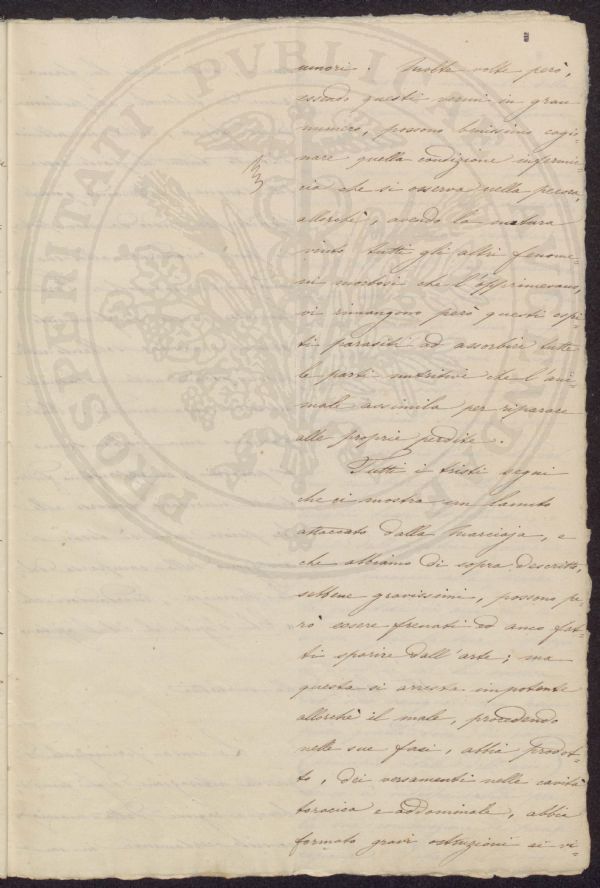 umori. Molte volte però,
essendo questi vermi in gran
numero, possono benissimo cagio-
nare quella condizione infermic-
cia che si osserva nella pecora,
allorchè, avendo la natura
vinto tutti gli altri fenome-
ni morbosi che l'opprimevano,
vi rimangono però questi ospi-
ti parasiti ad assorbire tutte
le parti nutritive che l'ani-
male assimila per riparare
alle proprie perdite.
Tutti i tristi segni
che ci mostra un lanuto
attaccato dalla Marciaja, e
che abbiamo di sopra descritto,
sebbene gravissimi, possono pe-
rò essere frenati ed anco fat-
ti sparire dall'arte; ma
questa si arresta impotente
allorchè il male, procedendo
nelle sue fasi, abbia prodot-
to, dei versamenti nelle cavità
toracica e addominale, abbia
formato gravi ostruzioni ai vi-
PROSPERITATI PVBLICAE